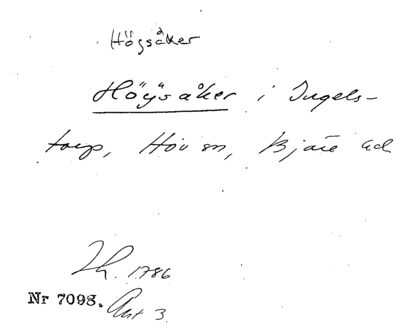 Högsåker
Högsåker i Ingels-
torp, Hov sn, Bjäre hd
Lh. 1786
Nr 7098. Akt 3